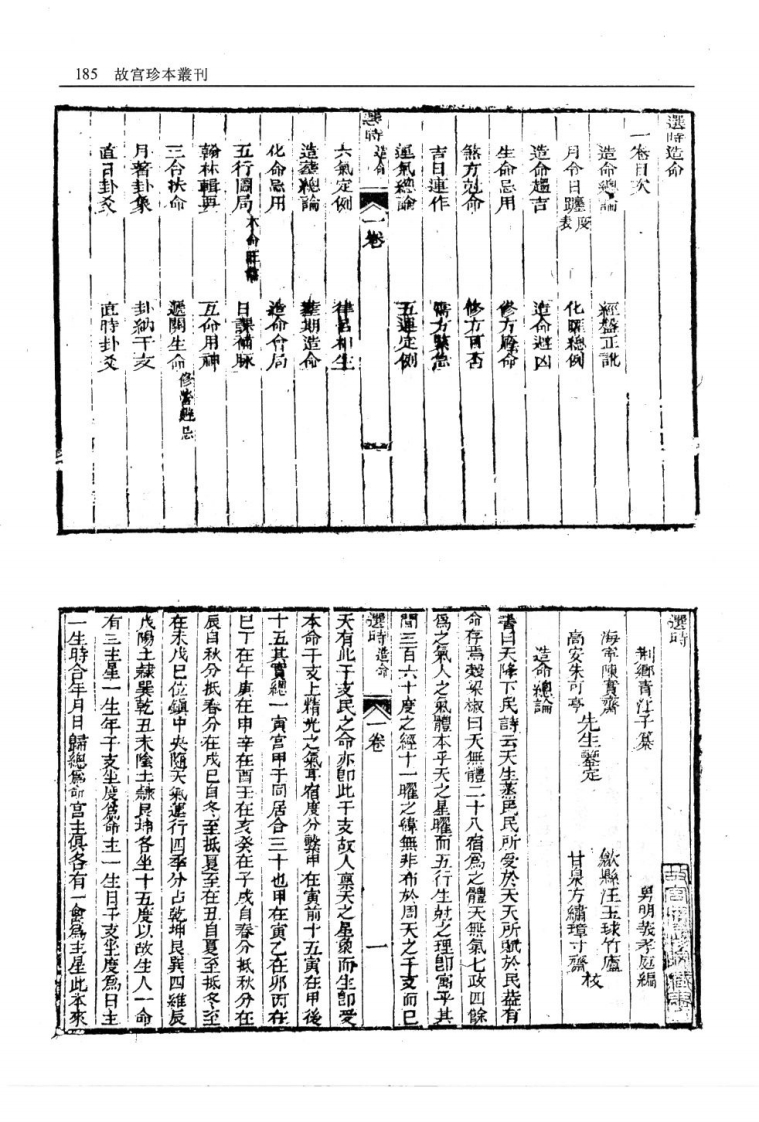 185 故宮珍本叢刊
選時造命
一卷目次
造命總論 經盤正訛
月令日躔度表 化曜總例
造命趨吉 造命避凶
生命忌用 修方廕命
煞方尅命 修方可否
吉日連作 需方緊急
運氣總論 五運定例
選時造命 一卷
六氣定例 律呂相生
造葬總論 葬期造命
化命忌用 造命合局
五行圖局本命旺鄉 日課補脉
翰林輯要 五命用神
三合扶命 選關生命修營避忌
月著卦象 卦納干支
直日卦爻 直時卦爻
選時
荆鄉青江子纂 男明義孝庭編
海寧陳實齋 歙縣汪玉球竹廬
高安朱可亭 先生鑒定 甘泉方繡璋寸齋 校
造命總論
書曰天降下民詩云天生蒸民民所受於天天所賦於民葢有
命存焉穀梁椒曰天無體二十八宿爲之體天無氣七政四餘
爲之氣人之氣體本乎天之星曜而五行生尅之理卽寓乎其
間三百六十度之經十一曜之緯無非布於周天之干支而已
選時造命 一卷 一
天有此干支民之命亦卽此干支故人禀天之星象而生卽受
本命干支上精光之氣耳宿度分繫甲在寅前十五寅在甲後
十五其實總一寅宮甲于同居合三十也甲在寅乙在卯丙在
巳丁在午庚在申辛在酉壬在亥癸在子戌自春分抵秋分在
辰自秋分抵春分在戌巳自冬至抵夏至在丑自夏至抵冬至
在未戊巳位鎮中央隨天氣運行四季分占乾坤艮巽四維辰
戌陽土隷巽乾丑未陰土隷艮坤各坐十五度以故生人一命
有三主星一生年干支坐度爲命主一生日干支坐度爲日主
一生時合年月日歸總爲命宮主俱各有一會爲主星此本來